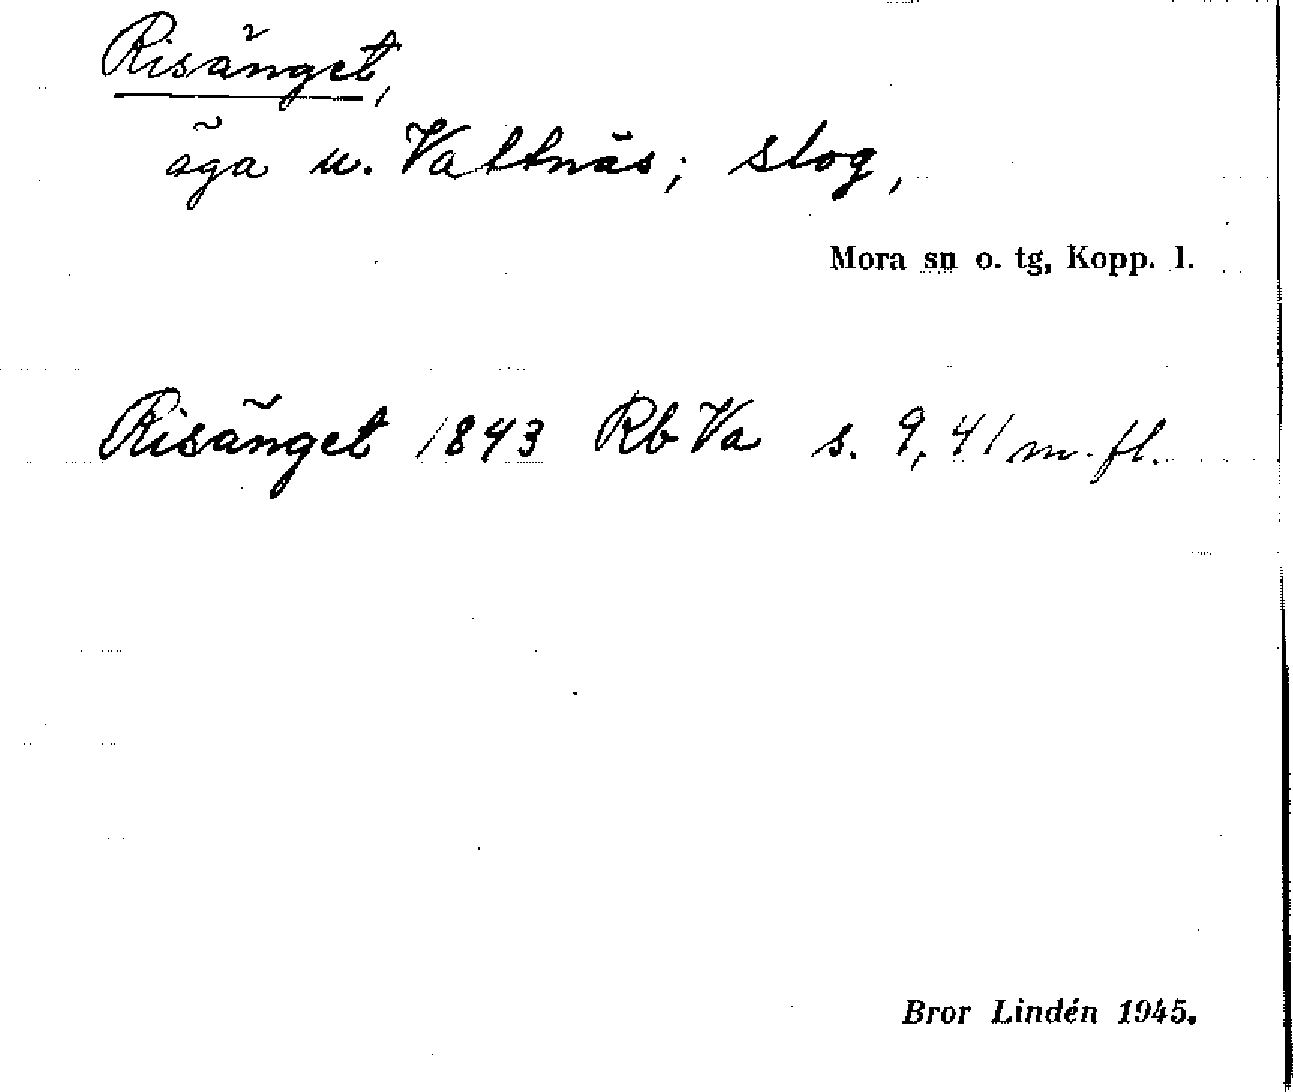 Risänget,
äga u. Vattnäs; slog,
Mora sn o. tg, Kopp. l.
Risänget 1843 Rb Va s. 9, 41 m. fl.
Bror Lindén 1945.